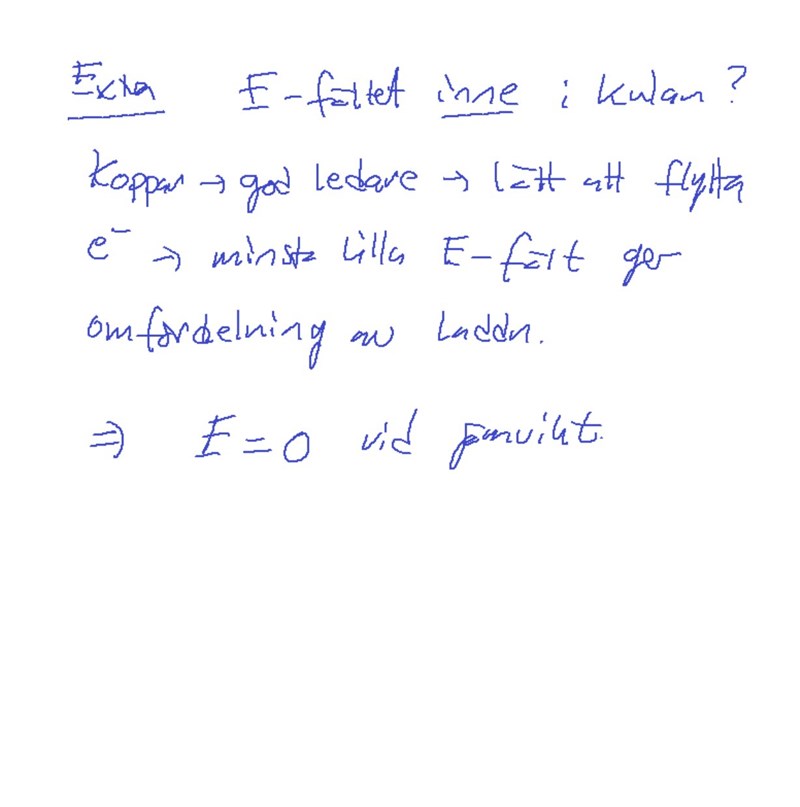 Extra E-fältet inne i kulan?
Koppar → god ledare → lätt att flytta
e⁻ → minsta lilla E-fält ger
omfördelning av laddn.
⇒ E = 0 vid jämvikt.